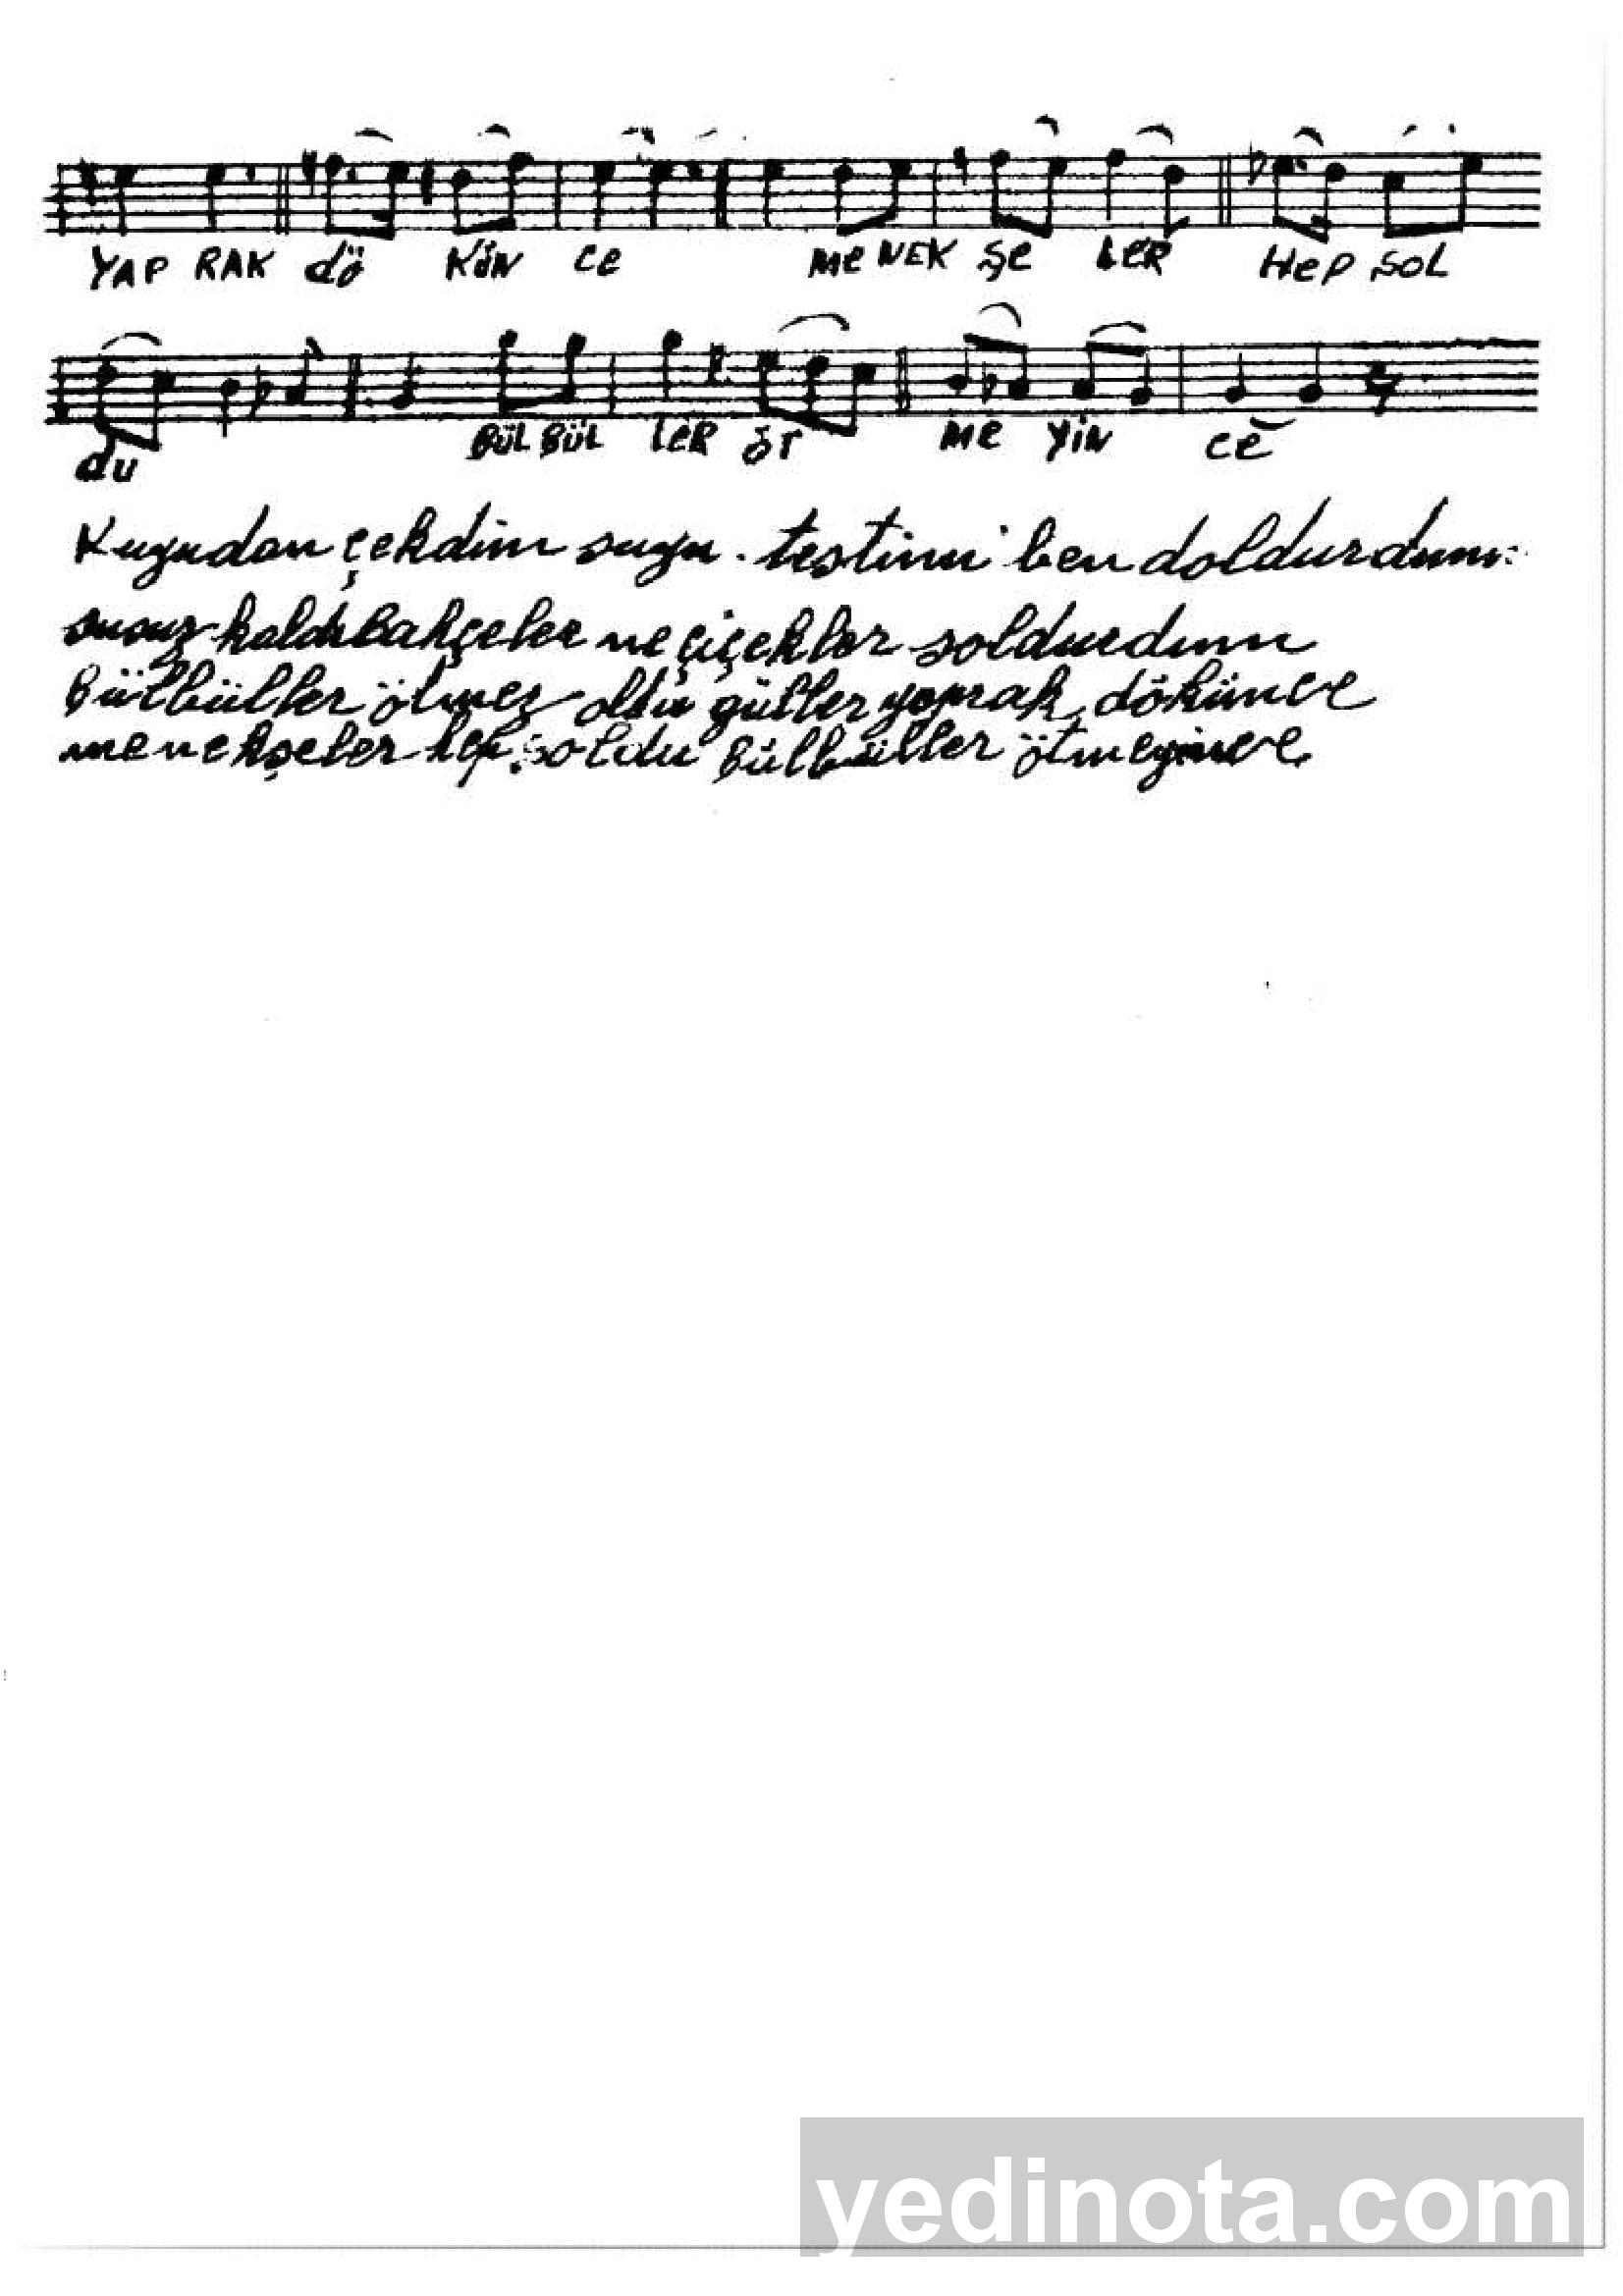 YAP RAK dö KÜN ce Me NEK ŞE LER HeP SOL
du BÜL BÜL LER ÖT Me YİN ce
Kuyudan çekdim suyu. testimi ben doldurdum:
susuz kaldı Bahçeler ne çiçekler soldurdum
Bülbüller ötmez oldu güller yaprak dökünce
menekşeler hep soldu Bülbüller ötmeyince
yedinota.com